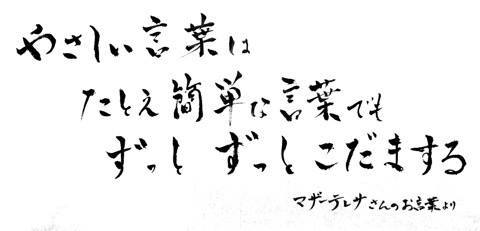 やさしい言葉は
たとえ簡単な言葉でも
ずっと ずっと こだまする
マザーテレサさんのお言葉より